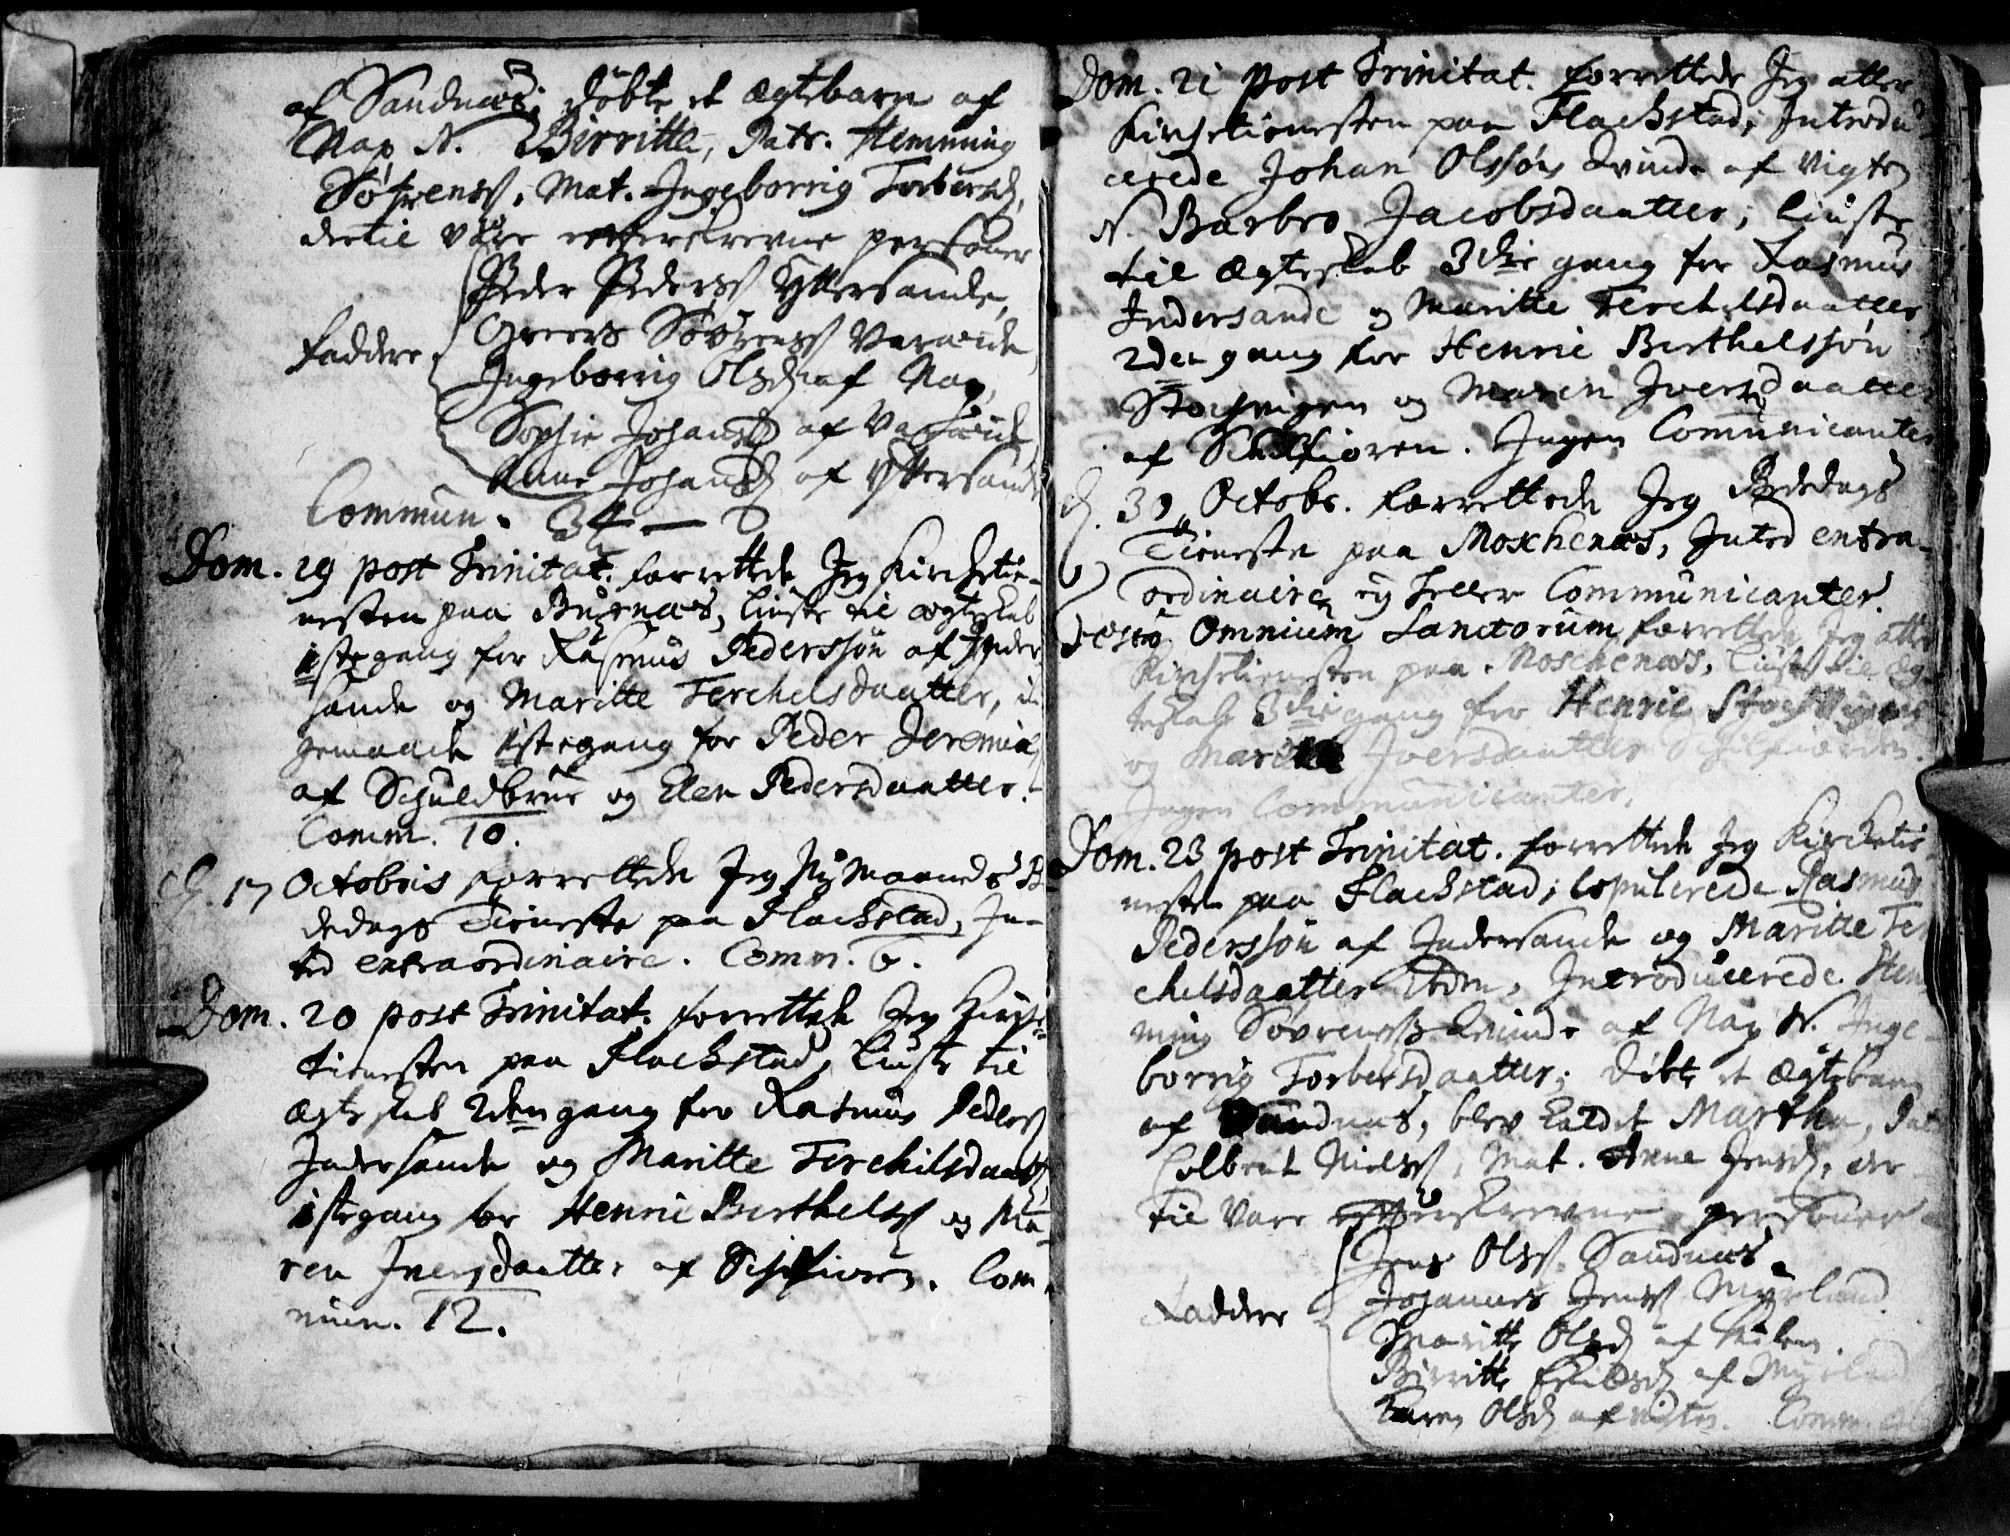 af Sandnæs; døbte et ægtebarn af
Nap N. Birritte, Patr. Hemming
Søfrenss. Mat. Ingeborrig Torbersd,
dertil vare efterskrevne personer
Peder Pederss Yttersande,
Greers Søvrenss Vareide
Faddere Ingeborrig Olsd af Nap,
Sophie Johansd af Vareide
Anne Johansd af Yttersande
Commun. 34
Dom. 19 post Trinitat. forrettede Jeg Kirchetie-
nesten paa Buxnæs, liuste til ægteskab
1ste gang for Rasmus Pederssøn af Inder
sande og Maritte Terchelsdaatter, i
gemaade 1ste gang for Peder Jeremias
af Schuldbrue og Elen Pedersdaatter.
Comm. 10.
d. 17 Octobris forrettede Jeg Ny Maaneds B
dedags Tieneste paa Flackstad, In-
ted extraordinaire. Comm. 6.
Dom. 20 post Trinitat. forrettede Jeg Kirche-
tienesten paa Flackstad, liuste til
ægteskab 2den gang for Rasmus Pederss
Indersande og Maritte Terchilsdaatt,
1ste gang for Henric Berthelss og Ma-
ren Iversdaatter af Schelfiorn. Com-
mun. 12.
Dom. 21 post Trinitat. forrettede Jeg atter
Kirchetienesten paa Flackstad; Introdu-
cerede Johan Olssøns Qvinde af Vigten
N. Barbro Jacobsdaatter; liuste
til ægteskab 3die gang for Rasmus
Indersande og Maritte Terchelsdaatter,
2den gang for Henric Berthelssøn
Stochvigen og Maren Iversdaatter
af Schelfioren. Ingen Communicanter
d. 31 Octobr. forrettede Jeg Bededags
Tieneste paa Moschenæs, Inted extra-
ordinaire, ey heller Communicanter.
Festo Omnium Sanctorum forrettede Jeg atter
Kirchetienesten paa Moschenæs, liuste til æg-
teskab 3die gang for Henric Stochvigen
og Maren Iversdaatter Schelfiorden.
Ingen Communicanter.
Dom. 23 post Trinitat. forrettede Jeg Kirchetie-
nesten paa Flackstad; Copulerede Rasmus
Pederssøn af Indersande og Maritte Ter
chelsdaatter Ibdm, Introducerede Hem
ming Søvrenss Qvinde af Nap N. Inge-
borrig Torbersdaatter; døbte et ægtebarn
af Sandnæs, blev kaldet Martha, Pat
Colbent Nielss, Mat. Anne Jensd, der
til vare efterskrevne personer
Jens Olss. Sandnæs
Faddere Johannes Jenss Myrland
Maritte Olsd af
Birritte af Myrland
Karen Olsd af Vigten. Comm.